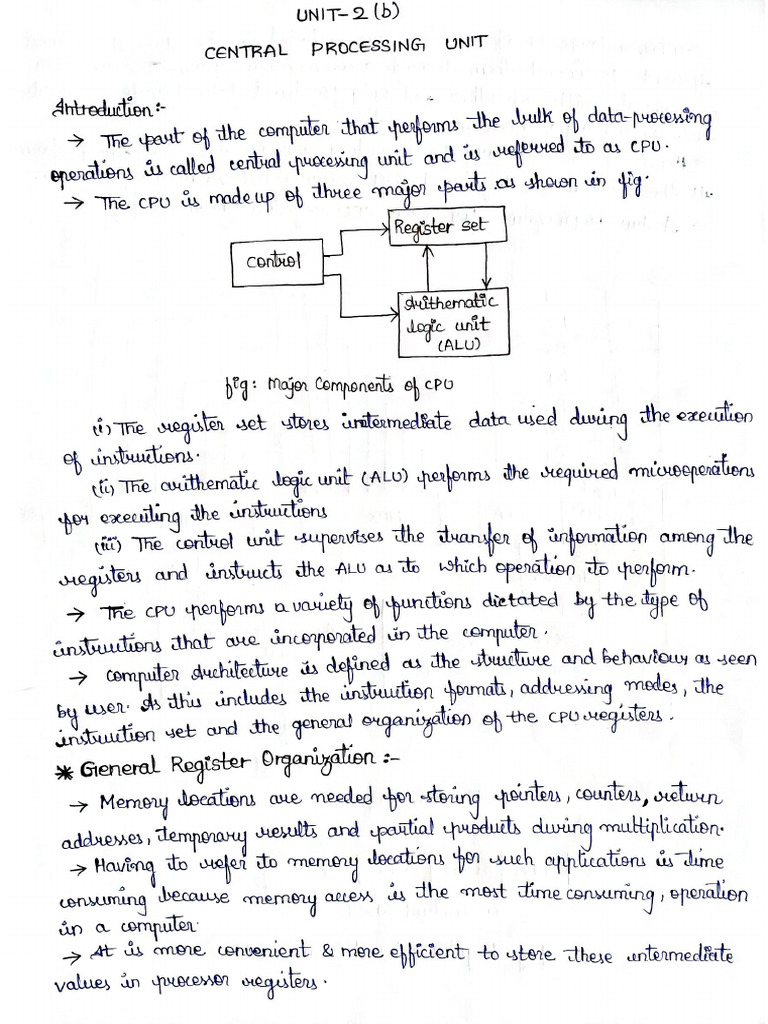 UNIT-2(b)
CENTRAL PROCESSING UNIT
Introduction:-
→ The part of the computer that performs the bulk of data-processing
operations is called central processing unit and is referred to as CPU.
→ The CPU is made up of three major parts as shown in fig.
Control
Register set
Arithematic
logic unit
(ALU)
fig: Major Components of CPU
(i) The register set stores intermediate data used during the execution
of instructions.
(ii) The arithematic logic unit (ALU) performs the required microoperations
for executing the instructions
(iii) The control unit supervises the transfer of information among the
registers and instructs the ALU as to which operation to perform.
→ The CPU performs a variety of functions dictated by the type of
instructions that are incorporated in the computer.
→ Computer Architecture is defined as the structure and behaviour as seen
by user. As this includes the instruction formats, addressing modes, the
instruction set and the general organization of the CPU registers.
* General Register Organization :-
→ Memory locations are needed for storing pointers, counters, return
addresses, temporary results and partial products during multiplication.
→ Having to refer to memory locations for such applications is time
consuming because memory access is the most time consuming, operation
in a computer.
→ It is more convenient & more efficient to store these intermediate
values in processor registers.